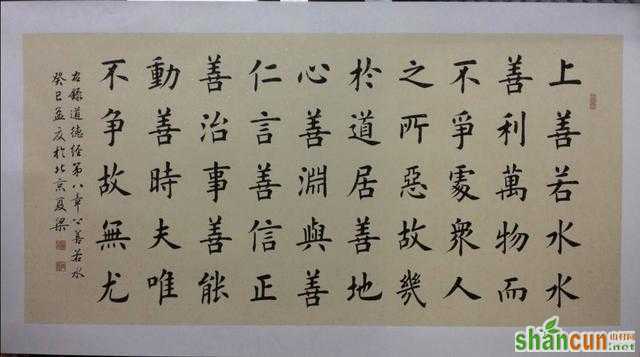 上善若水水
善利萬物而
不爭處衆人
之所惡故幾
於道居善地
心善淵與善
仁言善信正
善治事善能
動善時夫唯
不争故無尤
右錄道德經第八章上善若水
癸巳孟夏於北京夏梁
shancun
山村网
.net